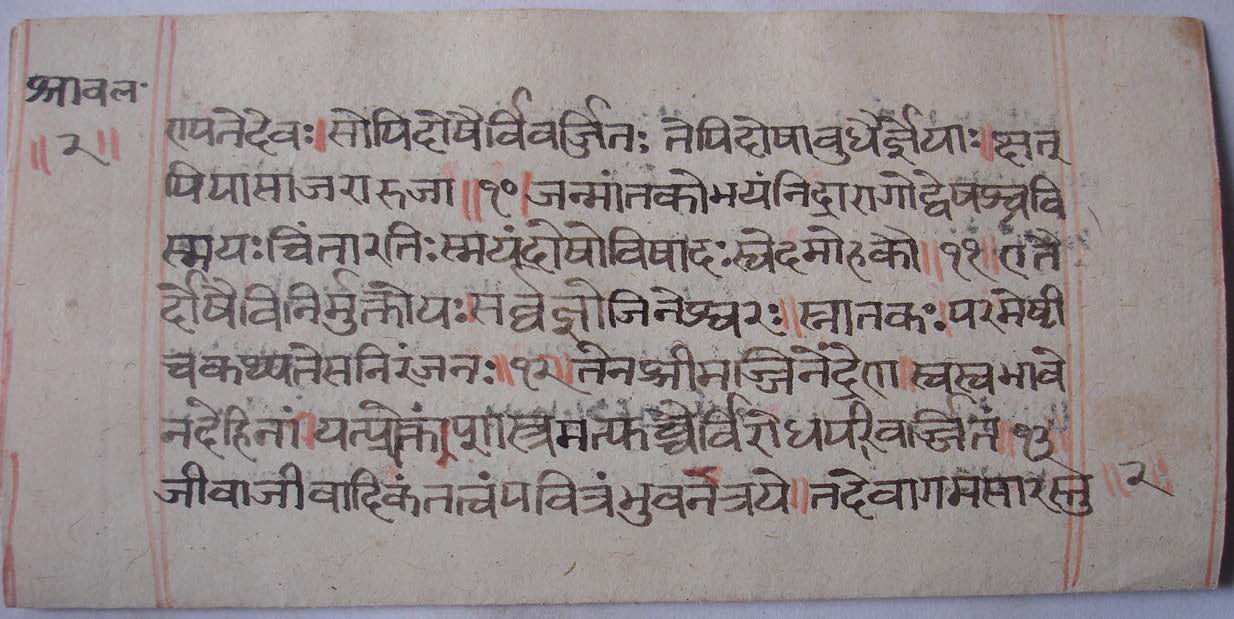 श्रावल॰
॥२॥
ण्यतेदेवः।सोपिदोषैर्विवर्जितः तेपिदोषाबुधैर्ज्ञेयाः॥क्षुत्
पिपासाजरारुजा॥१०॥जन्मांतकोभयंनिद्रारागोद्वेषश्चवि
स्मयःचिंतारतिःस्मयंदोषोविषादःस्वेदमोहकौ॥११॥एतै
र्दोषैविनिर्मुक्तोयःसर्वज्ञोजिनेश्वरः॥स्नातकः।परमेष्टी
चकथ्यतेसनिरंजनः॥१२॥तेनश्रीमज्जिनेंद्रेण॥स्वस्वभावे
नदेहिनां।यत्प्रोक्तं।शास्त्रमत्रविरोधपरिवर्जितं॥१३
जीवाजीवादिकंतत्वंपवित्रंभुवनत्रये॥तदेवागमसारस्तु
॥२